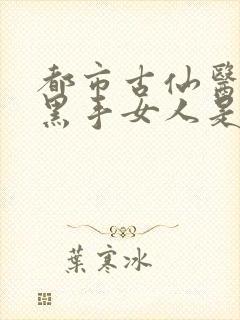 都市古仙醫
黑手女人是
葉寒冰